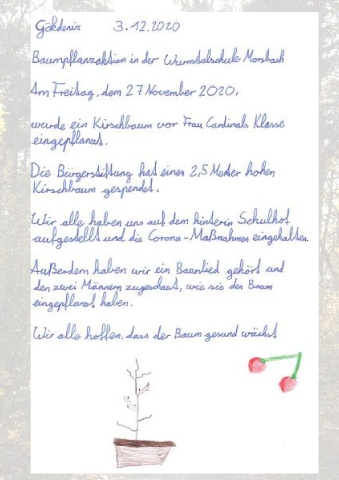 Gökdeniz 3.12.2020
Baumpflanzaktion in der Wurmtalschule Morsbach
Am Freitag, dem 27 November 2020,
wurde ein Kirschbaum vor Frau Cardinals Klasse
eingepflanzt.
Die Bürgerstiftung hat einen 2,5 Meter hohen
Kirschbaum gespendet.
Wir alle haben uns auf dem hinterin Schulhof
aufgestellt und die Corona-Maßnahmen eingehalten.
Außerdem haben wir ein Baumlied gehört und
den zwei Männern zugeschaut, wie sie den Baum
eingepflanzt haben.
Wir alle hoffen, dass der Baum gesund wächst